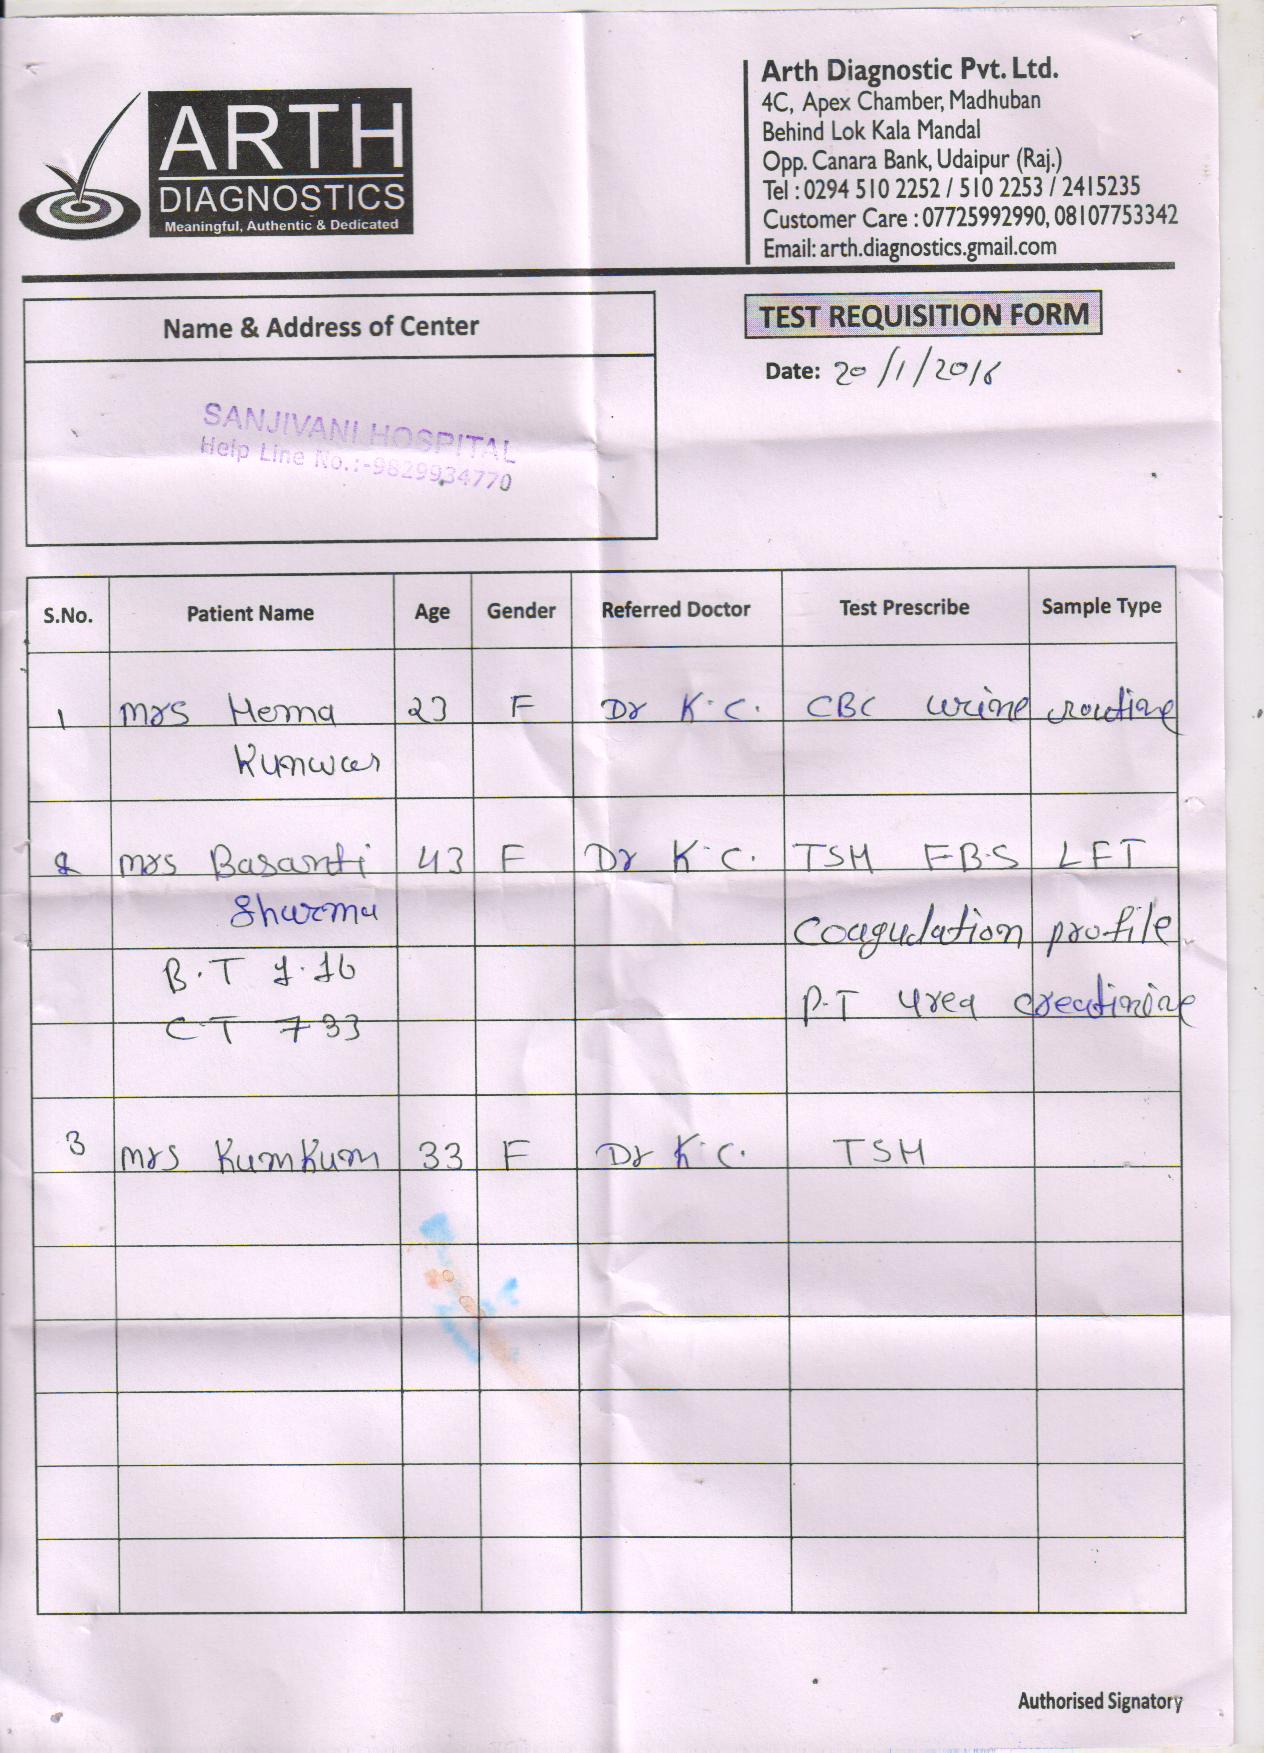 ARTH
DIAGNOSTICS
Meaningful, Authentic & Dedicated
Arth Diagnostic Pvt. Ltd.
4C, Apex Chamber, Madhuban
Behind Lok Kala Mandal
Opp. Canara Bank, Udaipur (Raj.)
Tel : 0294 510 2252 / 510 2253 / 2415235
Customer Care : 07725992990, 08107753342
Email: arth.diagnostics.gmail.com
Name & Address of Center
SANJIVANI HOSPITAL
Help Line No.:-9829934770
TEST REQUISITION FORM
Date: 20/1/2016
S.No. Patient Name Age Gender Referred Doctor Test Prescribe Sample Type
1 Mrs Hema 23 F Dr K.C. CBC urine routine
Kunwar
2 Mrs Basanti 43 F Dr K.C. TSH F.B.S LFT
Sharma Coagulation profile
B.T 1.16
P.T Urea creatinine
C.T 7 33
3 Mrs KumKum 33 F Dr K.C. TSH
Authorised Signatory